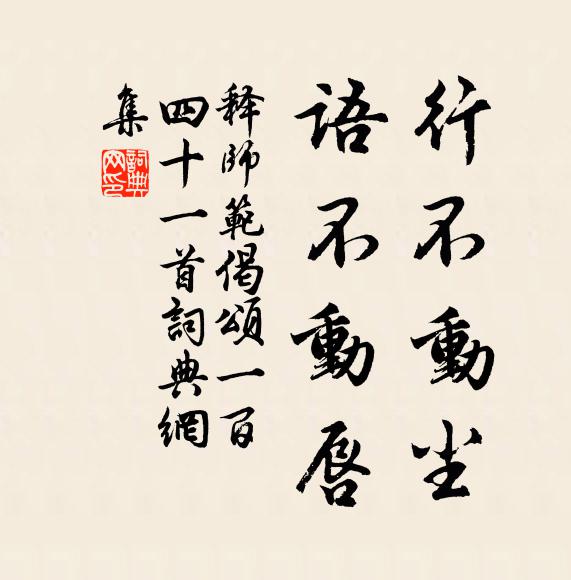 行不動尘
語不動唇
释師範偈頌一百
四十一首詞典網
集
詞典
网印